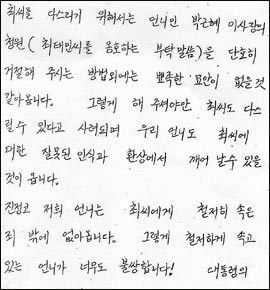 최씨를 다스리기 위해서는 언니인 박근혜 이사장의
청원 (최태민씨를 옹호하는 부탁말씀)을 단호히
거절해 주시는 방법외에는 뾰족한 묘안이 없을것
같아옵니다. 그렇게 해 주셔야만 최씨도 다스
릴수 있다고 사려되며 우리 언니도 최씨에
대한 잘못된 인식과 환상에서 깨어 날수 있을
것이 옵니다.
진정코 저희 언니는 최씨에게 철저히 속은
죄 밖에 없아옵니다. 그렇게 철저하게 속고
있는 언니가 너무도 불쌍합니다! 대통령의